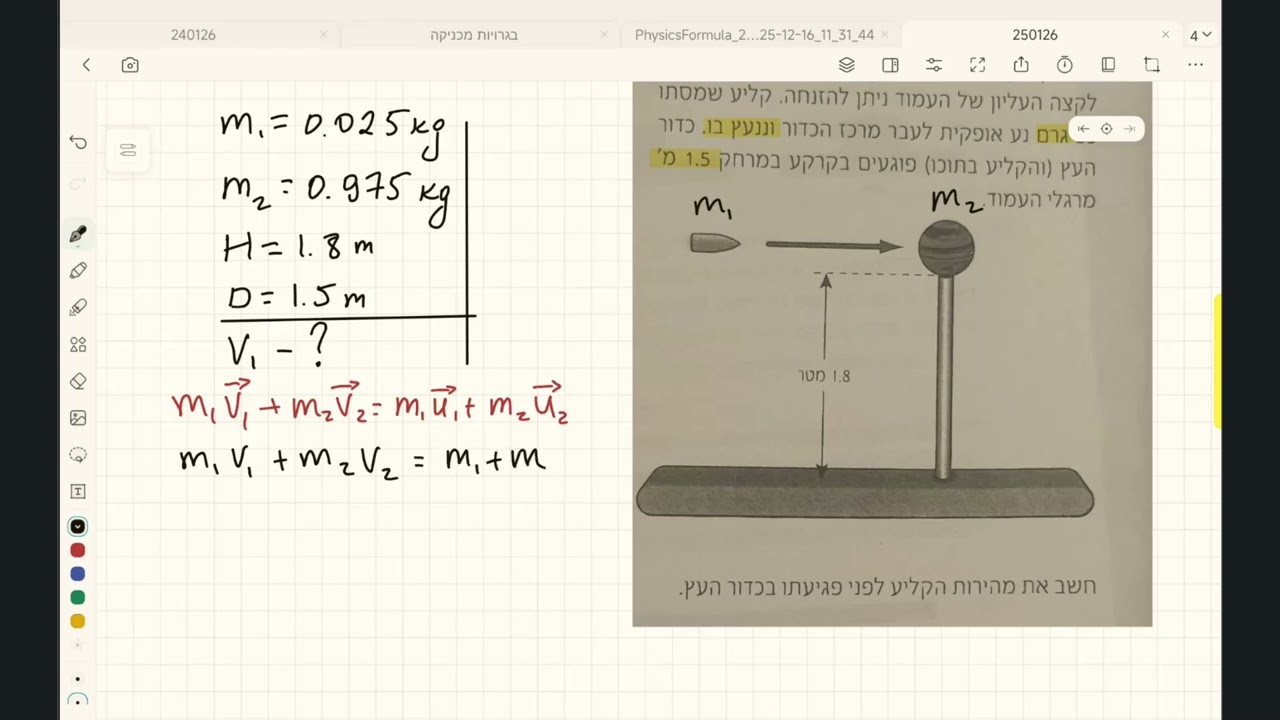 240126
בגרויות מכניקה
PhysicsFormula_2...25-12-16_11_31_44
250126
4
m₁ = 0.025 kg
m₂ = 0.975 kg
H = 1.8 m
D = 1.5 m
V₁ - ?
m₁V⃗₁ + m₂V⃗₂ = m₁u⃗₁ + m₂u⃗₂
m₁V₁ + m₂V₂ = m₁ + m
לקצה העליון של העמוד ניתן להזנחה. קליע שמסתו
גרם נע אופקית לעבר מרכז הכדור וננעץ בו. כדור
העץ (והקליע בתוכו) פוגעים בקרקע במרחק 1.5 מ'
מרגלי העמוד.
m₁
m₂
1.8 מטר
חשב את מהירות הקליע לפני פגיעתו בכדור העץ.